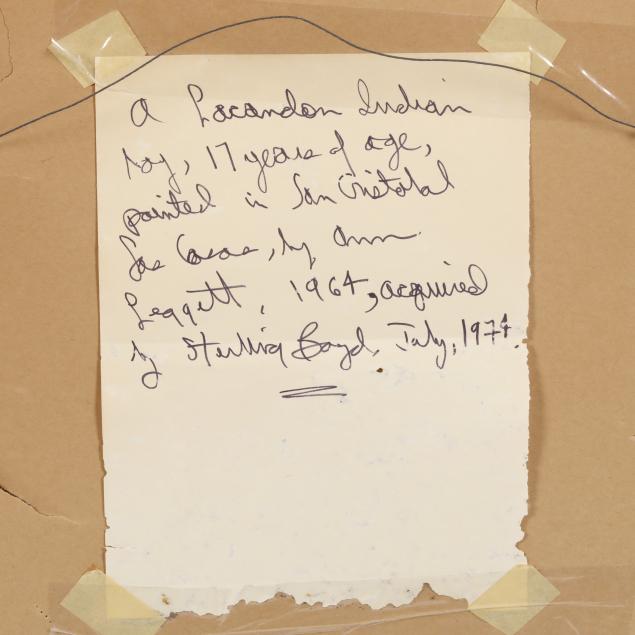 A Lacandon Indian
boy, 17 years of age,
painted in San Cristobal
Las Casas, by Ann
Leggett, 1964, acquired
by Sterling Boyd, July, 1974.